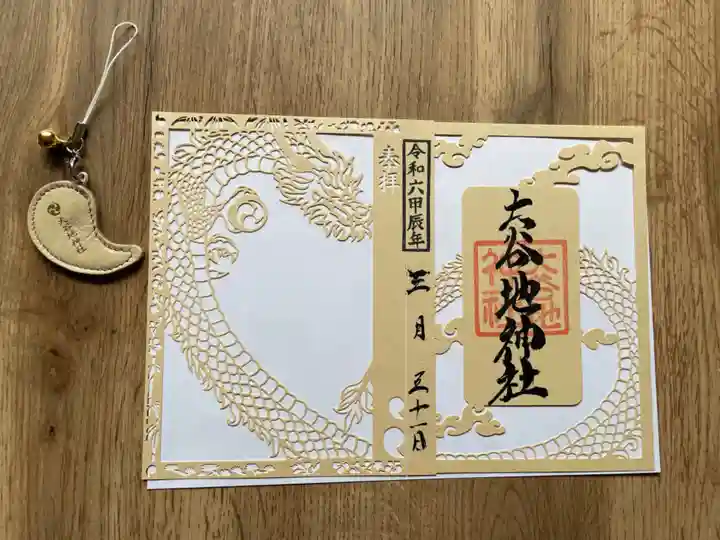 奉拝
令和六甲辰年
三月三十一日
大谷地神社
大谷地
神社